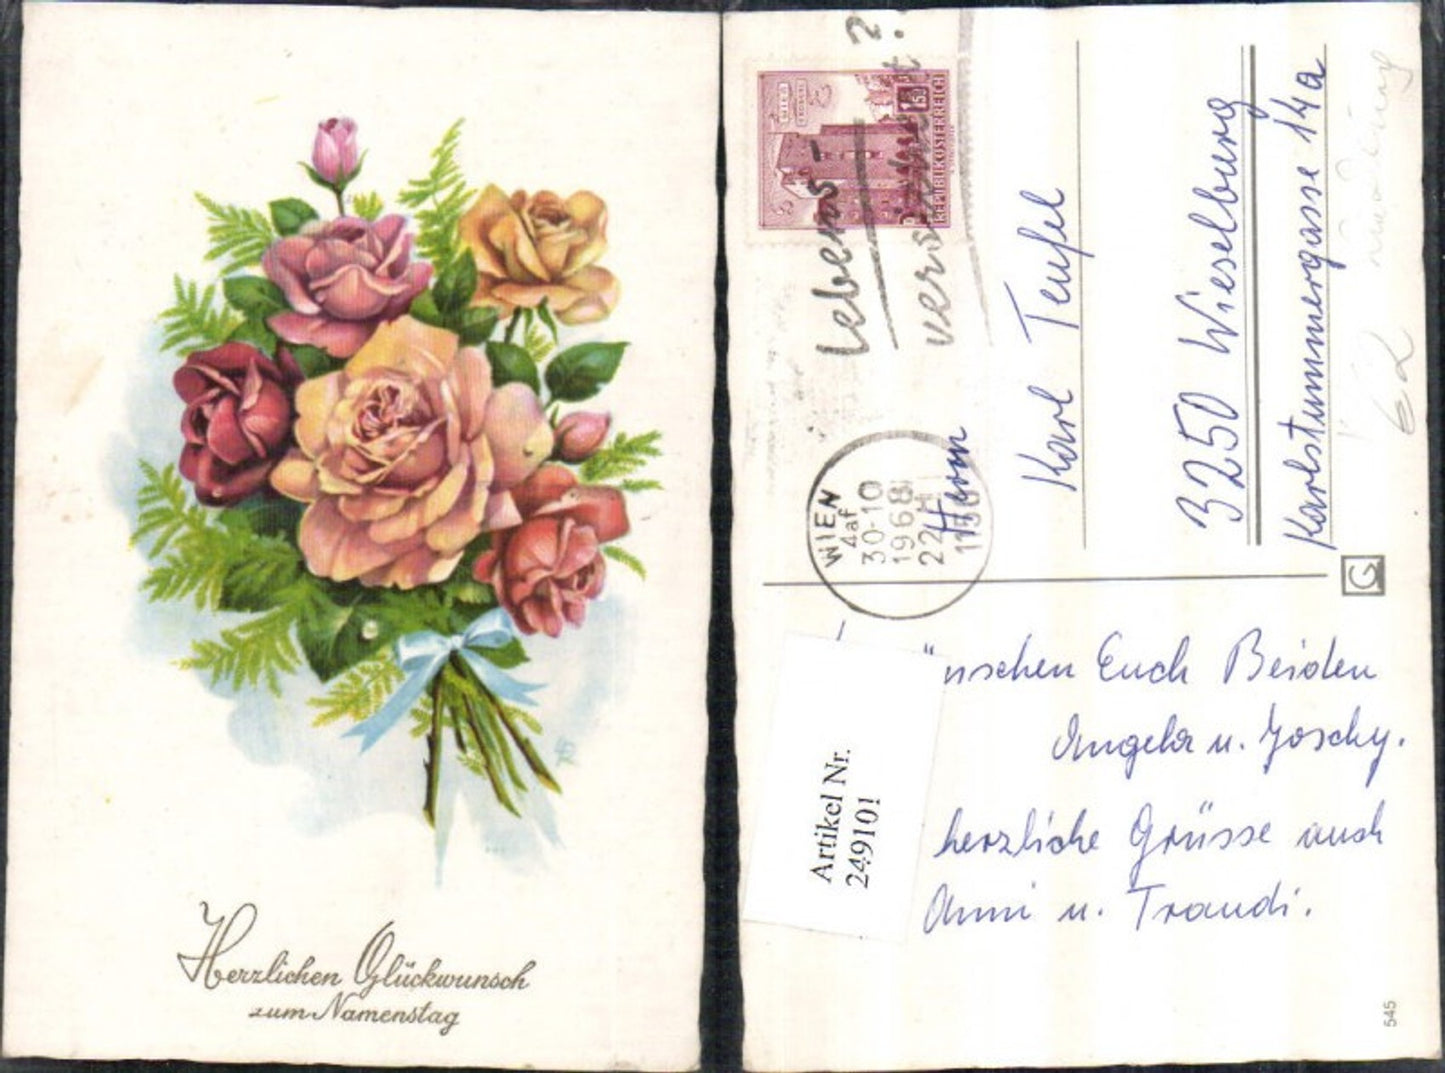 Herzlichen Glückwunsch
zum Namenstag
REPUBLIK ÖSTERREICH
1.50
Lebens-
versichert?
WIEN
4af
30-10
1968
22H
1150
Herrn
Karl Teufel
3250 Wieselburg
Karlstummergasse 14a
62
G
nschen Euch Beiden
Angela u. Joschy.
herzliche Grüsse auch
Anni u. Traudi.
Artikel Nr.
249101
545